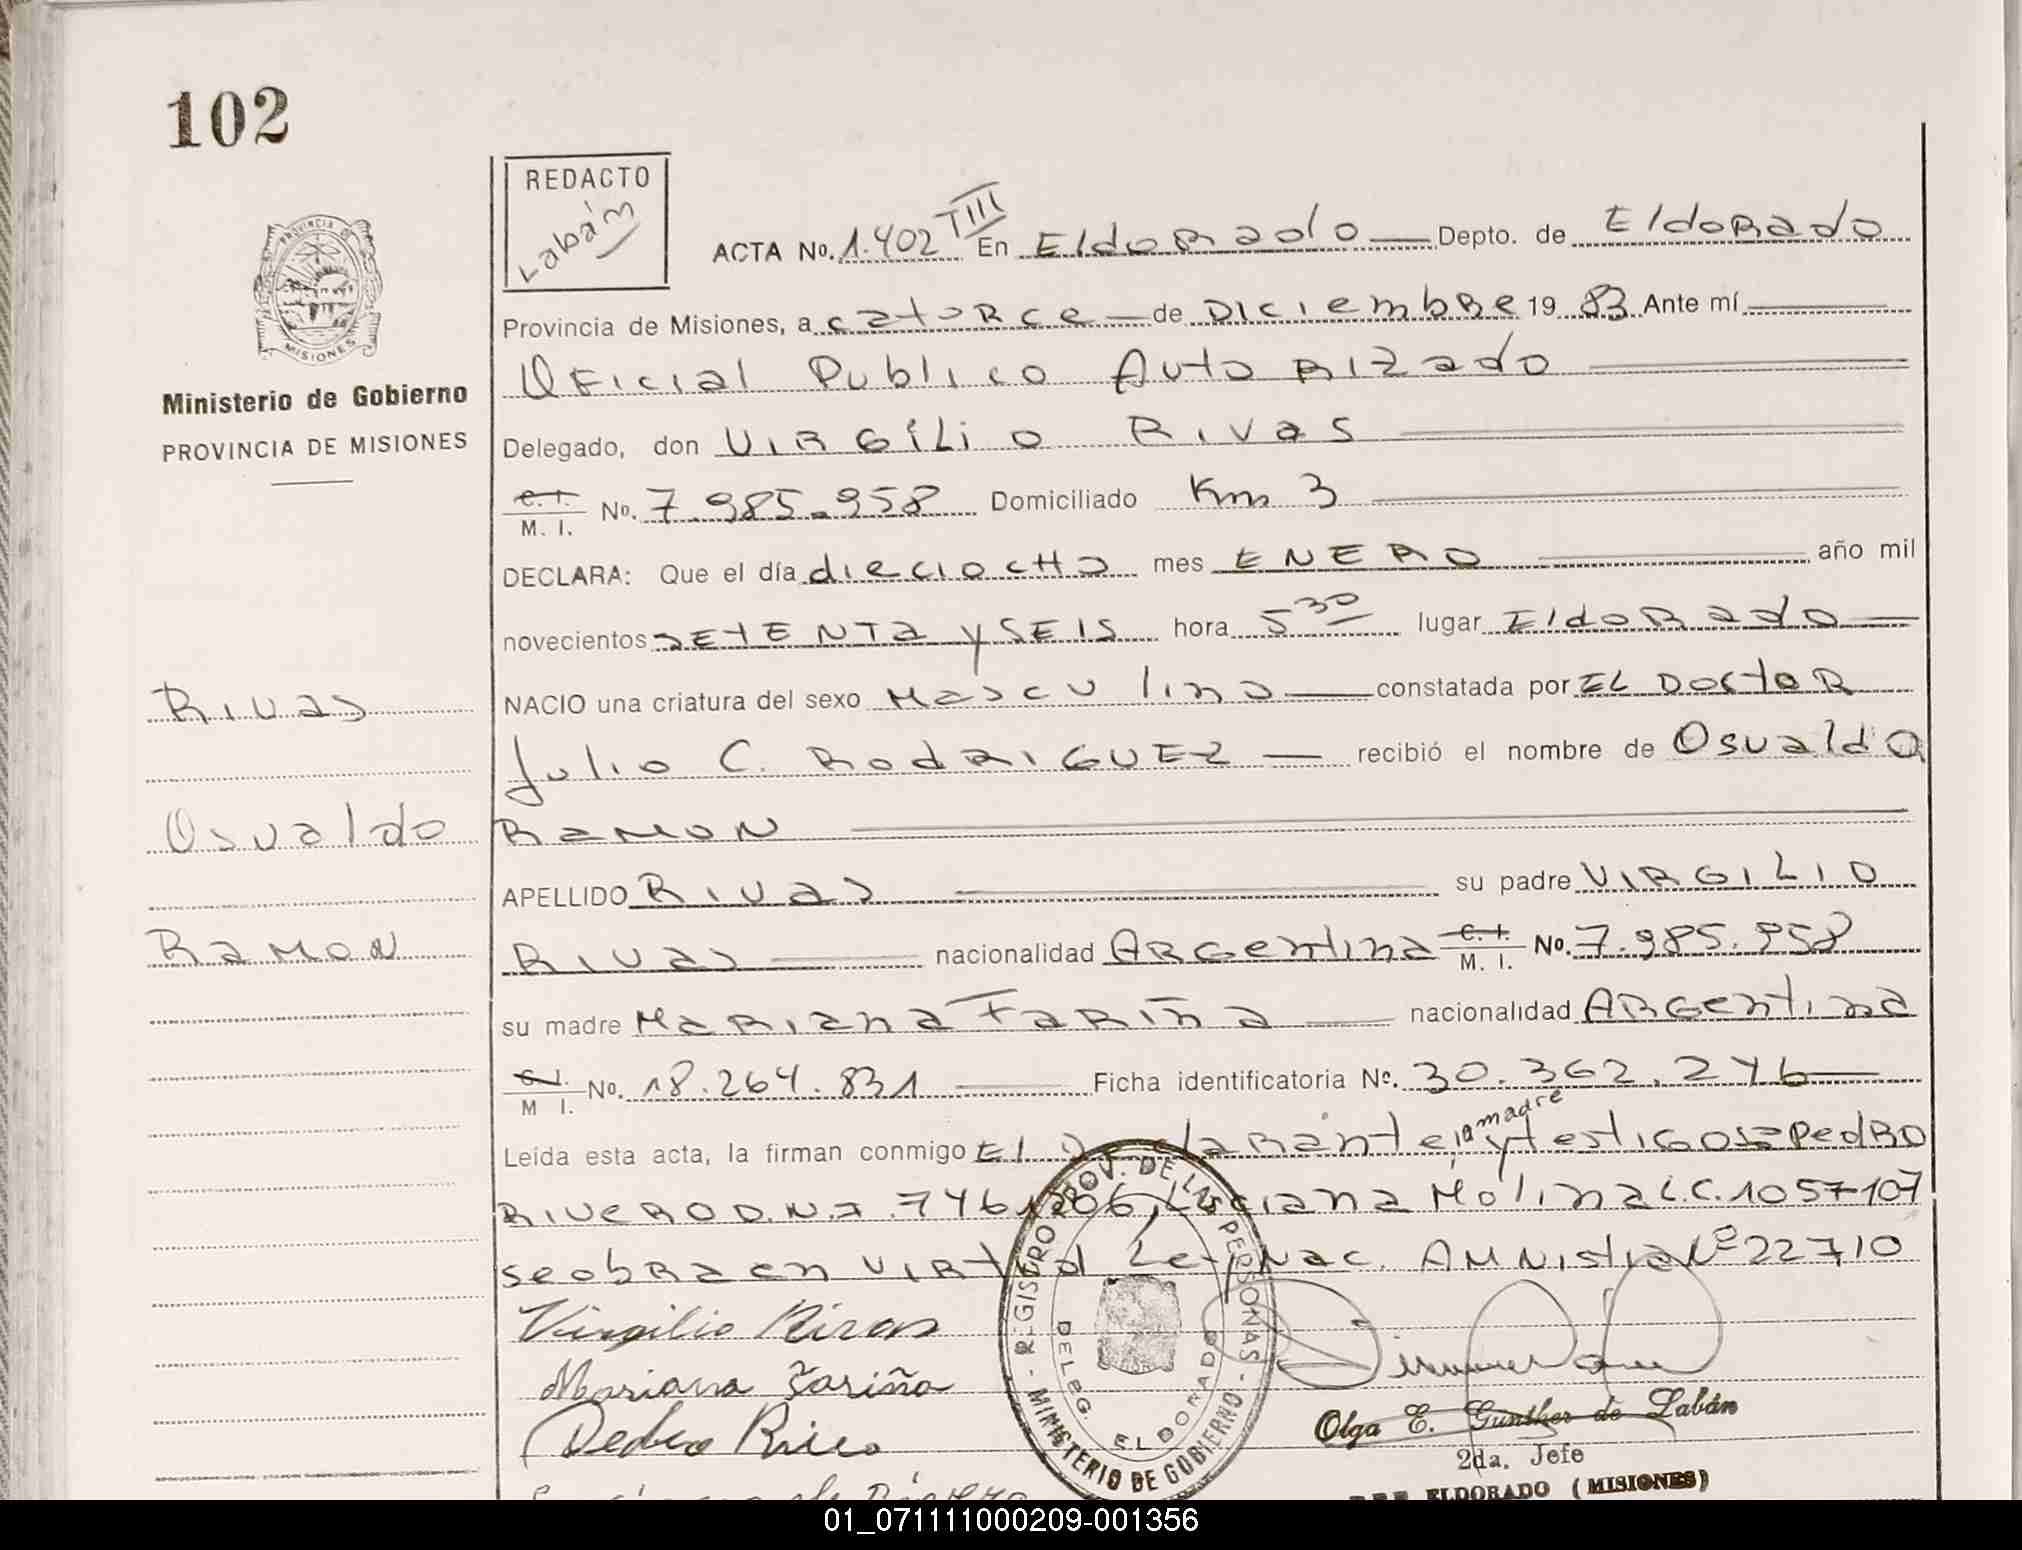 102
REDACTO
Labán
ACTA No. 1.402 TIII En Eldorado Depto. de Eldorado
PROVINCIA DE
MISIONES
Ministerio de Gobierno
PROVINCIA DE MISIONES
Provincia de Misiones, a catorce de Diciembre 19 83 Ante mí
Oficial Publico Autorizado
Delegado, don VIRGÍLiO RIVAS
C. I. M. I. No. 7.985.958 Domiciliado Km 3
DECLARA: Que el día dieciocho mes ENERO año mil
novecientos SETENTA y SEIS hora 5 30 lugar Eldorado
NACIO una criatura del sexo Masculino constatada por EL DOCtoR
Julio C. RodRIGUEZ recibió el nombre de Osvaldo
RAMON
APELLIDO RIVAS su padre VIRGILIO
RIVAS nacionalidad ARGentina C. I. M. I. No. 7.985.958
su madre MARIANA FARIÑA nacionalidad ARGentina
C. I. M I. No. 18.264.831 Ficha identificatoria Nº. 30.362.246
Leída esta acta, la firman conmigo El Declarante, la madre y testigos Pedro
RIVERO D.N.I. 7461206, Luciana Molina L.C. 1057107
se obra en virtud Ley Nac. AMNistia Nº 22710
Rivas
Osvaldo
Ramon
Virgilio Rivas
Mariana Fariña
Pedro Rivero
REGISTRO PROV. DE LAS PERSONAS
- MINISTERIO DE GOBIERNO -
DELEG. ELDORADO
Olga E. Gunther de Labán
2da. Jefe
ELDORADO (MISIONES)
01_071111000209-001356